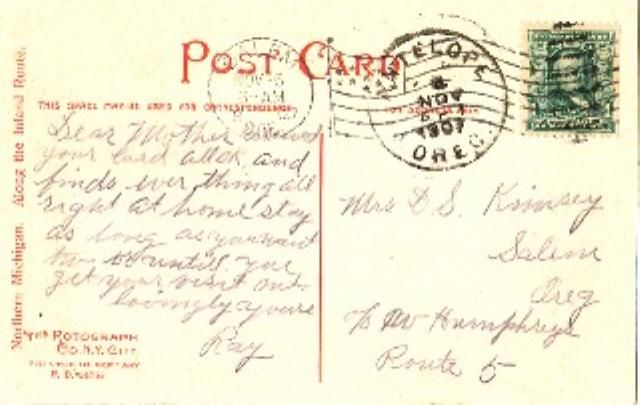 POST CARD
THIS SPACE MAY BE USED FOR CORRESPONDENCE
ANTELOPE
NOV
1907
OREG.
Northern Michigan. Along the Inland Route.
Dear Mother
your card all ok and
finds ever thing all
right at home stay
as long as you want
to until you
get your visit out
lovingly yours
Ray
Mrs D S. Kimsey
Salem
Oreg
c/o W Humphreys
Route 5
THE ROTOGRAPH
CO. N.Y. CITY